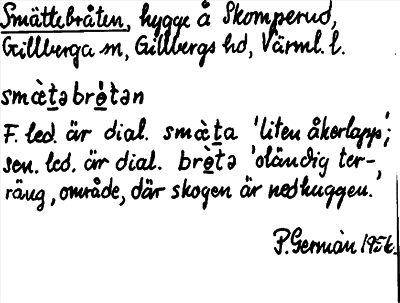 Smättebråten, hygge å Skomperud,
Gillberga sn, Gillbergs hd, Värml. l.
smæ̀t̲əbrɵ̀tən
F. led. är dial. smæ̀t̲a 'liten åkerlapp';
sen. led. är dial. brɵ̀tə 'oländig ter-
räng, område, där skogen är nedhuggen.'
P. Germán 1956.